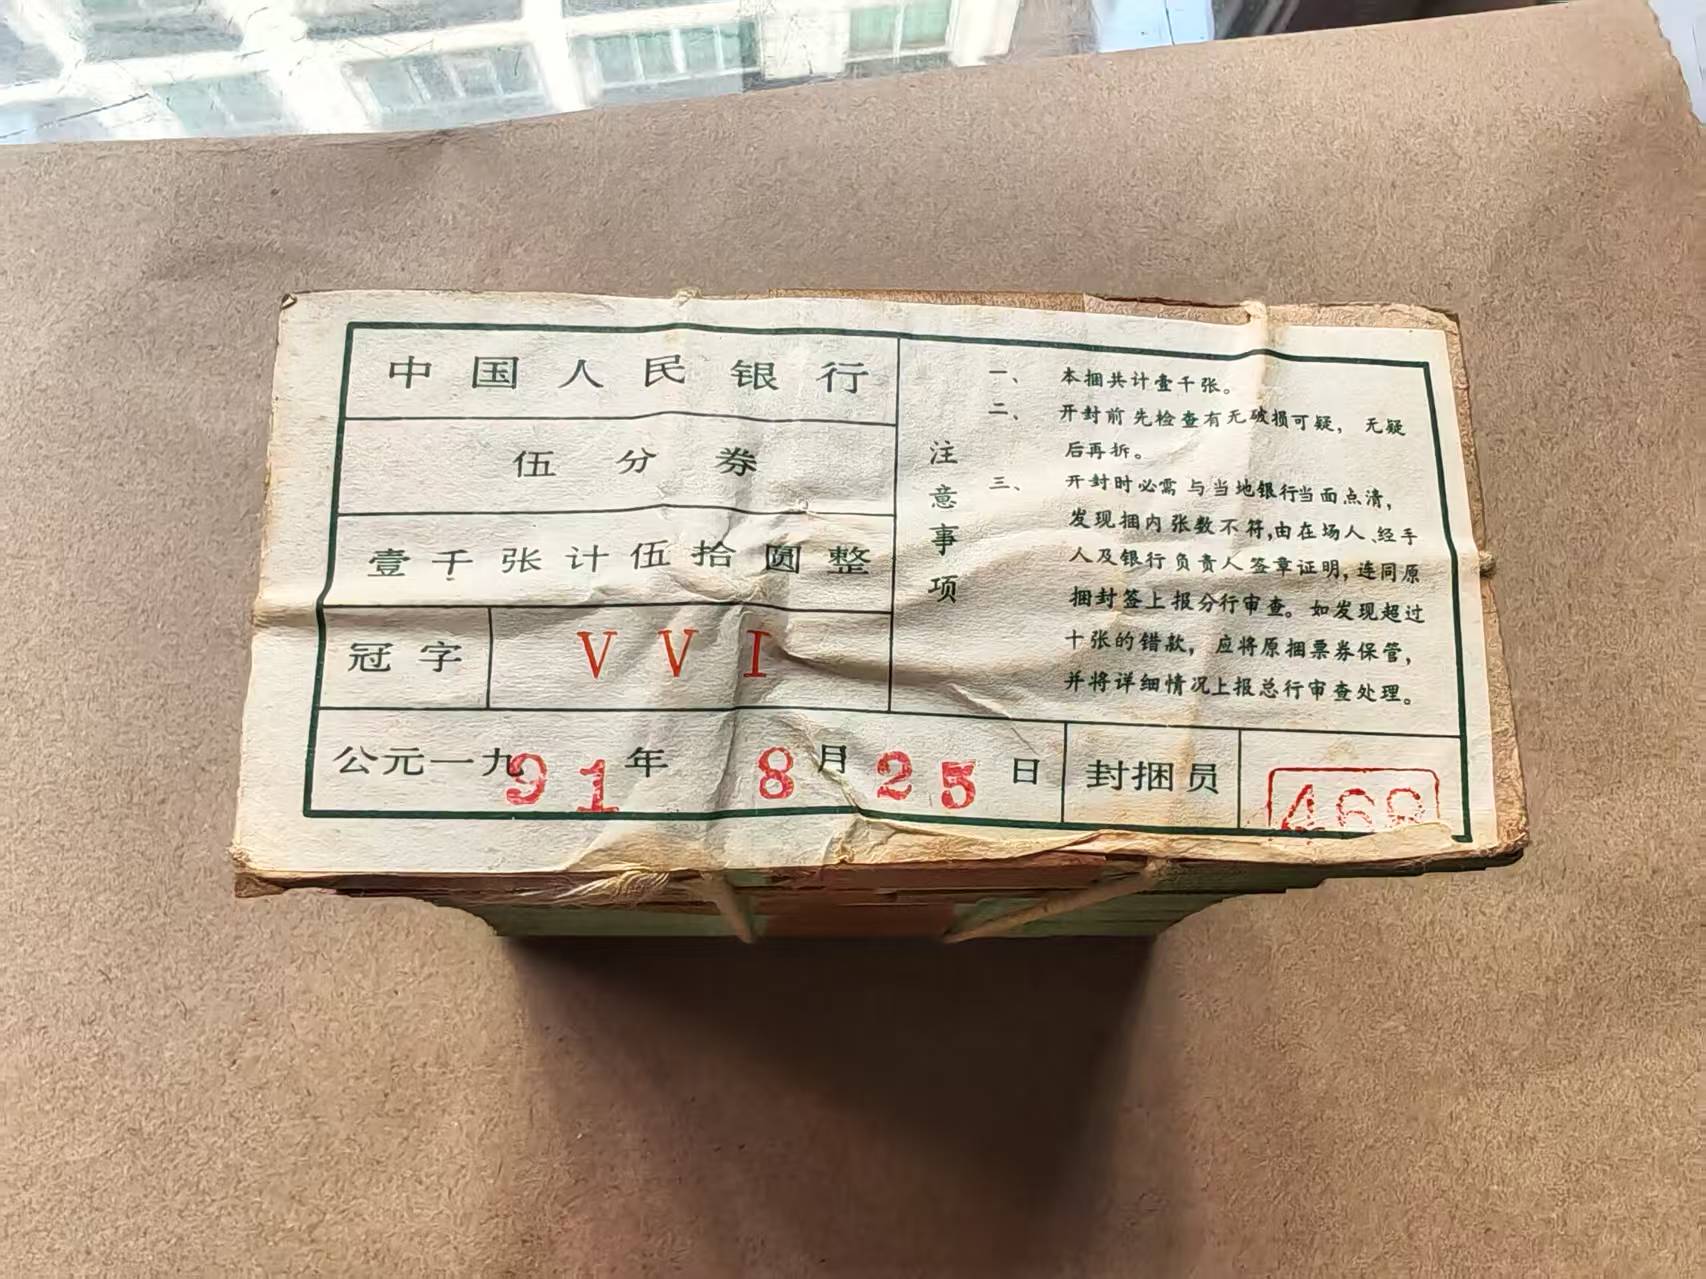 中国人民银行
伍分券
壹千张计伍拾圆整
冠字 VVI
公元一九91年 8月25日 封捆员
注意事项
一、 本捆共计壹千张。
二、 开封前先检查有无破损可疑, 无疑
后再拆。
三、 开封时必需与当地银行当面点清,
发现捆内张数不符,由在场人、经手
人及银行负责人签章证明,连同原
捆封签上报分行审查。如发现超过
十张的错款,应将原捆票券保管,
并将详细情况上报总行审查处理。